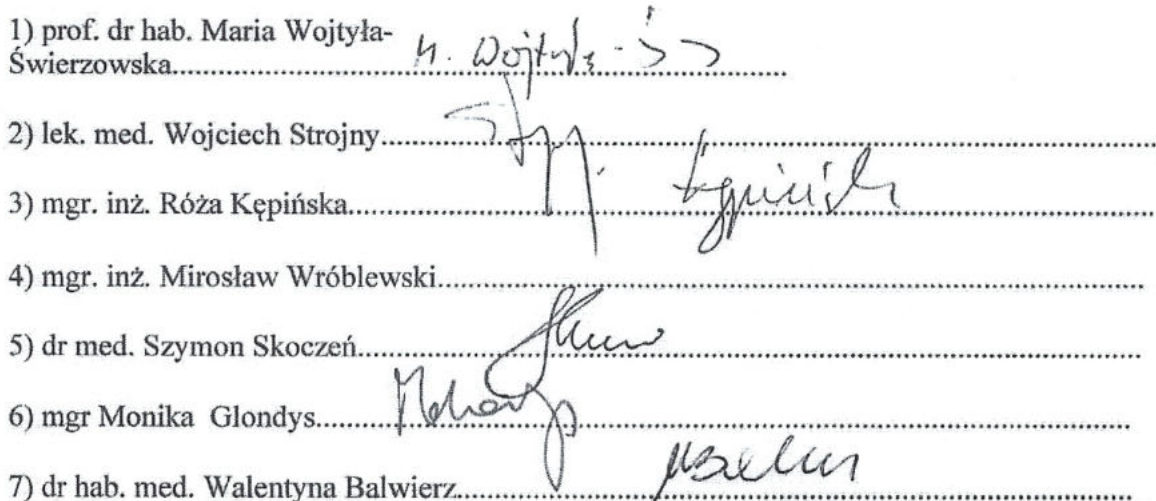 1) prof. dr hab. Maria Wojtyła-
Świerzowska.......................................................................................... M. Wojtyła-
2) lek. med. Wojciech Strojny..........................................................................................
3) mgr. inż. Róża Kępińska.......................................................................................... Kępińska
4) mgr. inż. Mirosław Wróblewski..........................................................................................
5) dr med. Szymon Skoczeń..........................................................................................
6) mgr Monika Glondys..........................................................................................
7) dr hab. med. Walentyna Balwierz..........................................................................................